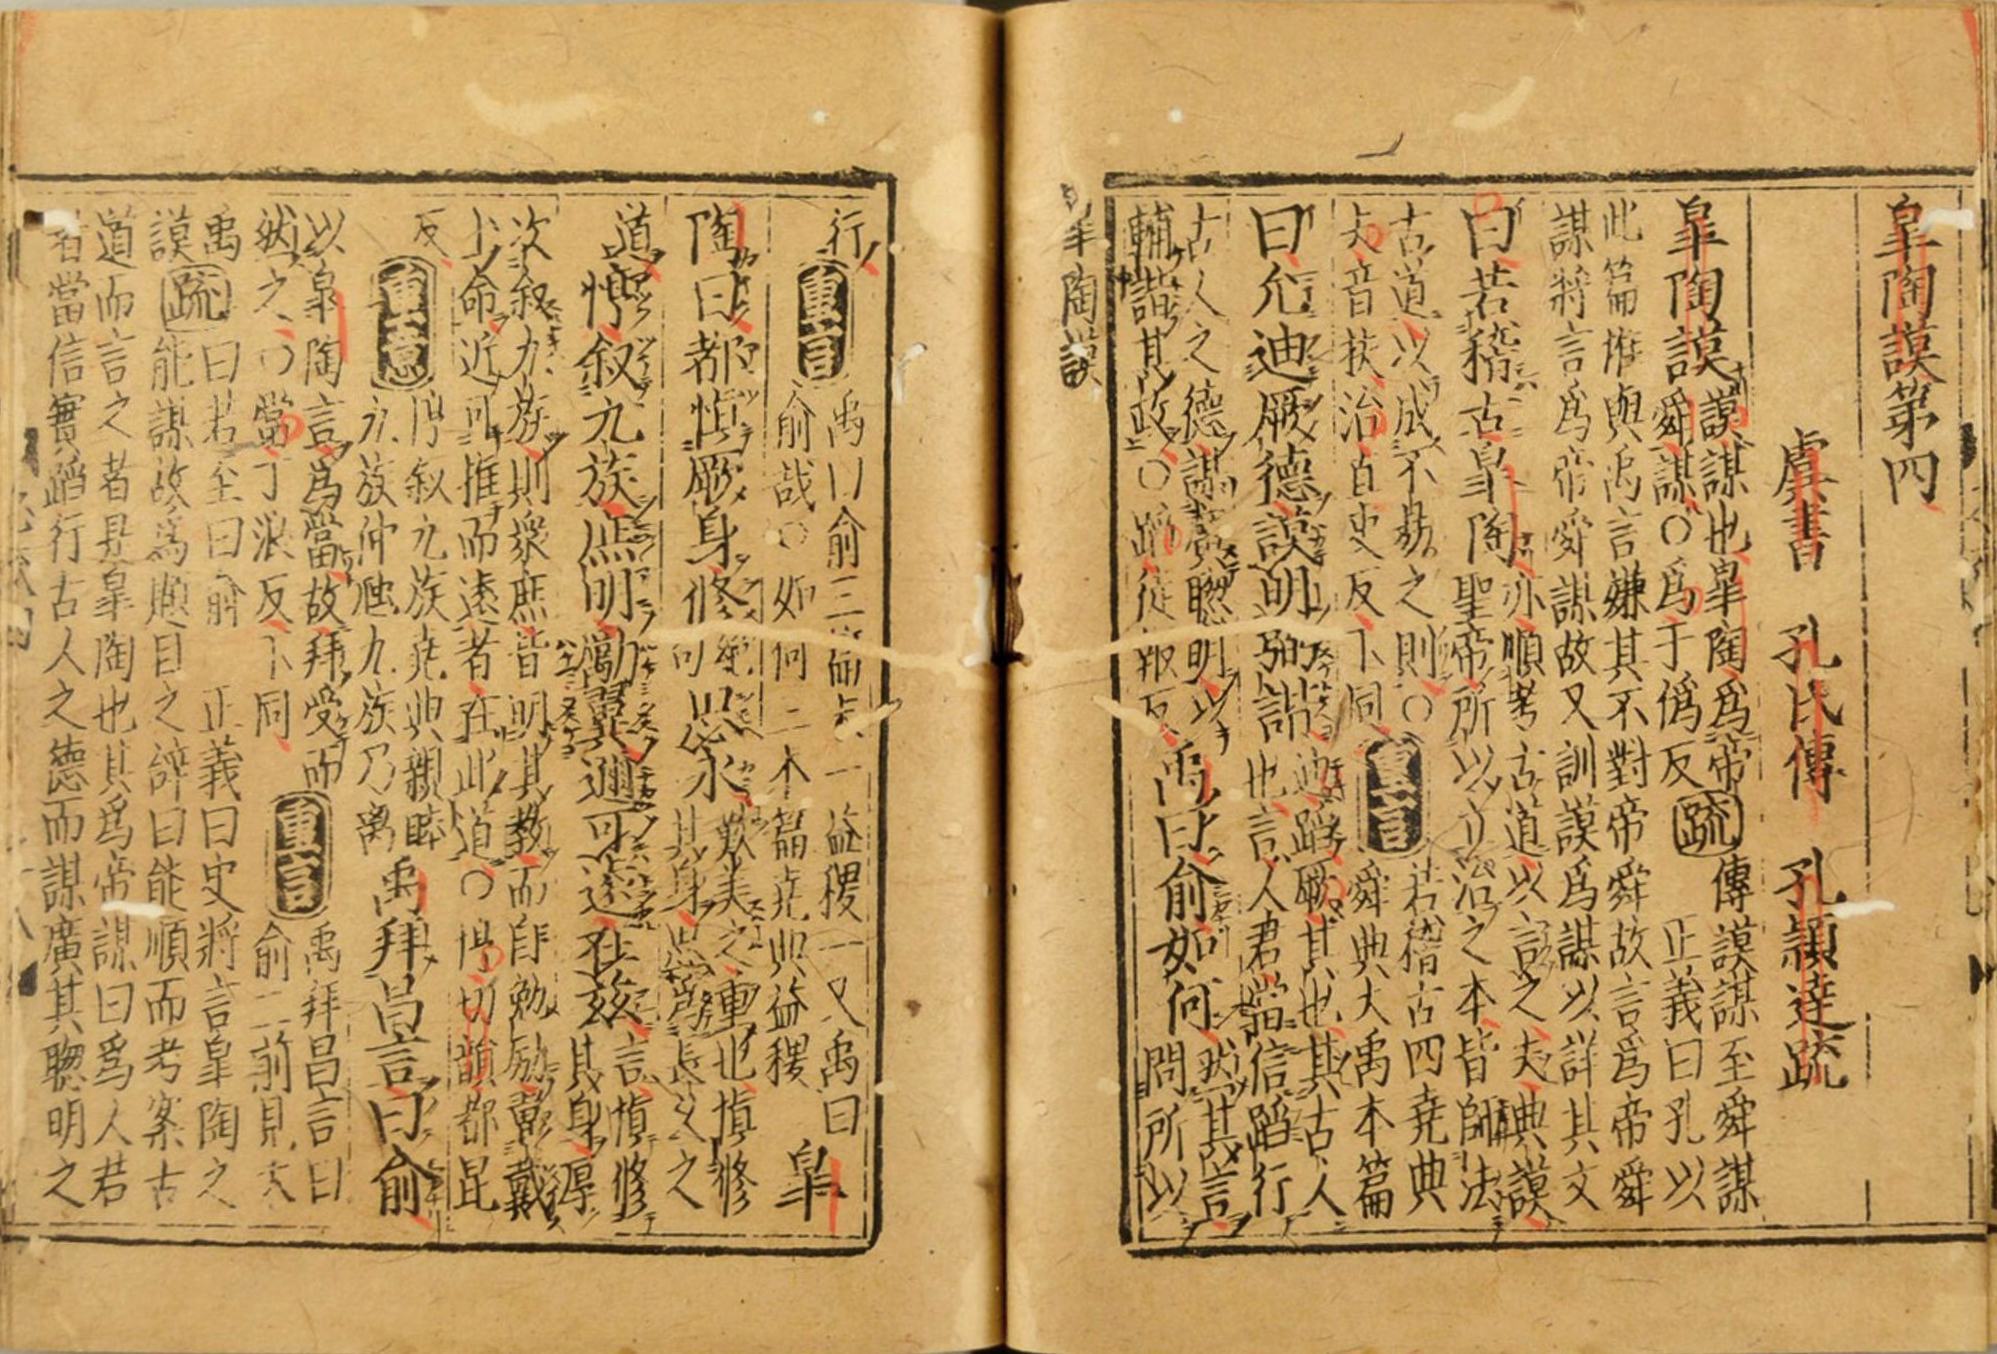 皐陶謨第四
虞書　孔氏傳　孔穎達疏
皐陶謨
謨謀也皐陶爲帝
舜謀○爲于僞反
疏
傳謨謀至舜謀
正義曰孔以
此篇惟與禹言嫌其不對帝舜故言爲帝舜
謀將言爲帝舜謀故又訓謨爲謀以詳其文
曰若稽古皐陶
亦順考古道以言之夫典謨
聖帝所以立治之本皆師法
古道以成不易之則○
夫音扶治直吏反下同
重言
若稽古四堯典
舜典大禹本篇
曰允迪厥德謨明弼諧
迪蹈厥其也其古人
也言人君當信蹈行
古人之德謀廣聰明以
輔諧其政○蹈徒報反
禹曰俞如何
然其言
問所以
皐陶謨
行
重言
禹曰俞三篇末一益稷一又禹曰
俞哉○如何二本篇堯典益稷
皐
陶曰都慎厥身修思永
歎美之重也慎修
其身思爲長久之
道
惇叙九族庶明勵翼邇可遠在兹
言慎修
其身厚
次叙九族則衆庶皆明其教而自勉励翼戴
上命近可推而遠者在此道○惇切韻都昆
反
重意
惇叙九族堯典親睦
九族仲虺九族乃离
禹拜昌言曰俞
以皐陶言爲當故拜受而
然之○當丁浪反下同
重言
禹拜昌言曰
俞二前見大
禹
謨
疏
曰若至曰俞　正義曰史將言皐陶之
能謀故爲題目之辭曰能順而考案古
道而言之者是皐陶也其爲帝謀曰爲人君
者當信實蹈行古人之德而謀廣其聰明之